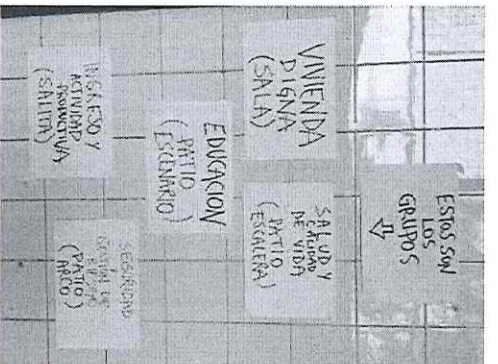 ESTOS SON
LOS
GRUPOS
VIVIENDA
DIGNA
(SALA)
SALUD Y
CALIDAD
DE VIDA
(PATIO
ESCALERA)
EDUCACION
(PATIO
ESCENARIO)
INGRESO Y
ACTIVIDAD
PRODUCTIVA
(SALITA)
SEGURIDAD
(PATIO
ARCO)